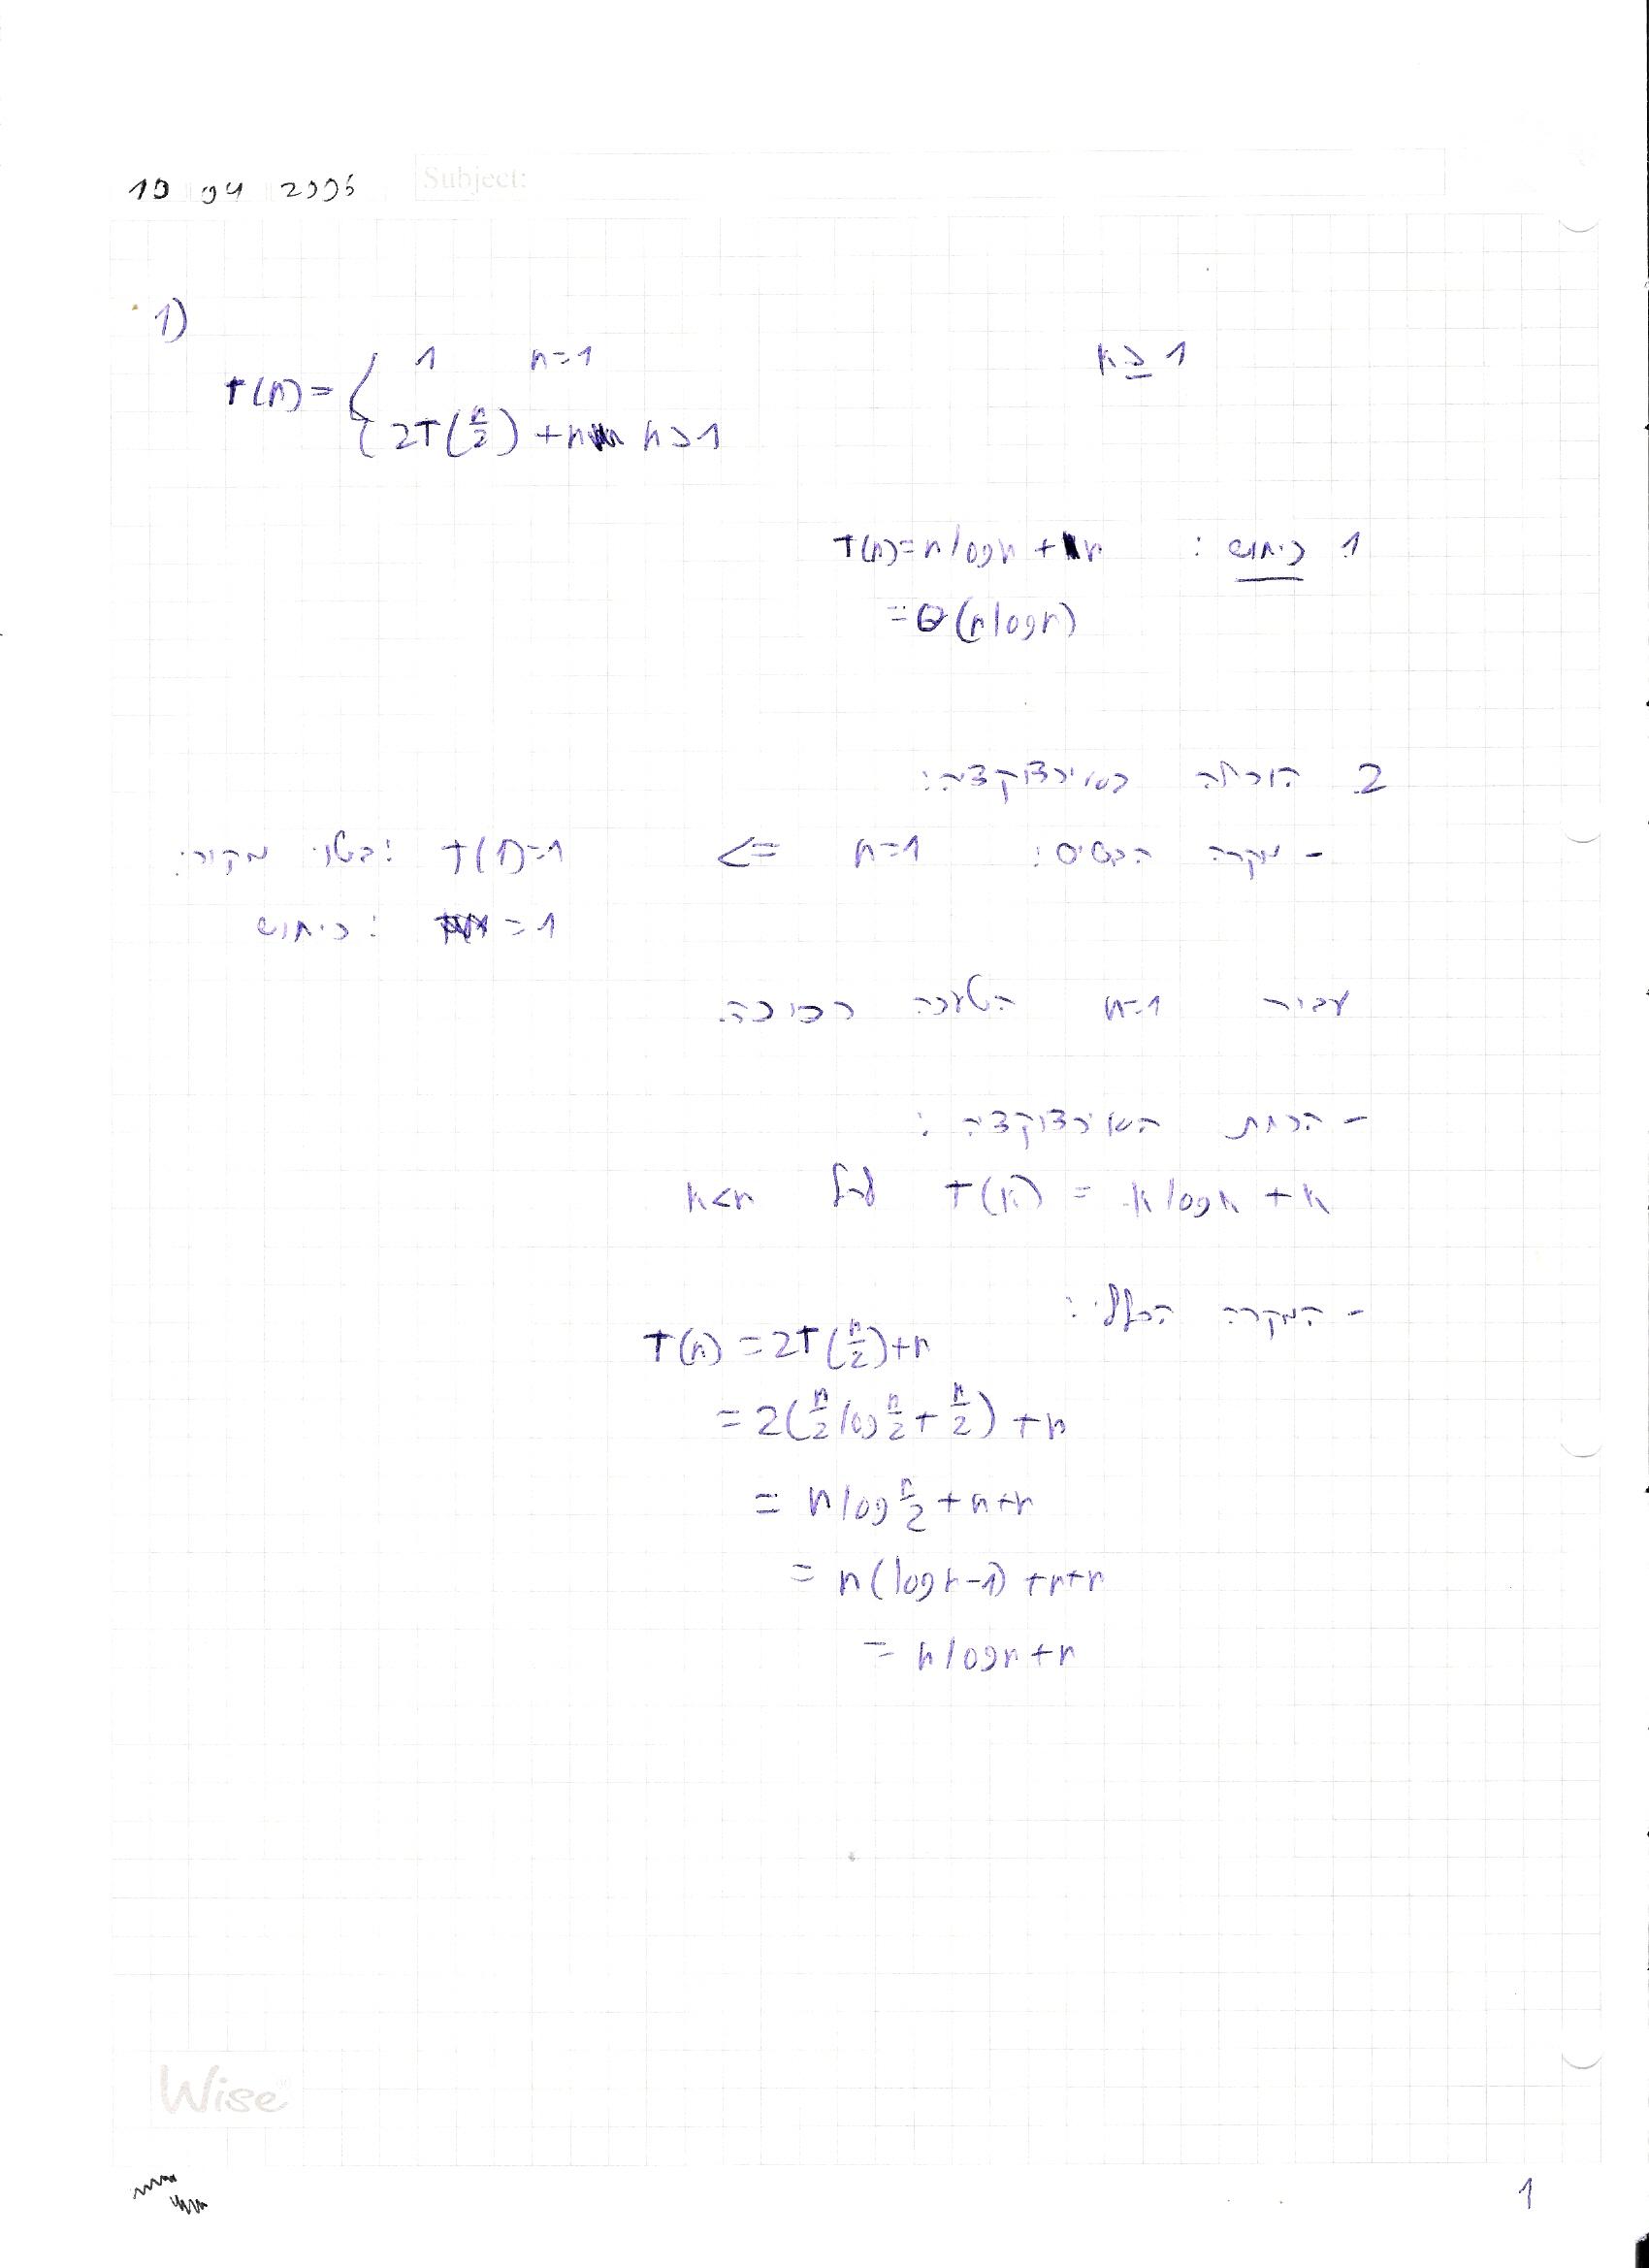 10 04 2006 Subject:
1)
T(n) = { 1 n=1
2T(n/2) + n n>1
n ≥ 1
1. ניחוש: T(n) = n log n + n
= Θ(n log n)
2. הוכחה באינדוקציה:
- מקרה הבסיס: n=1 <=
בטוי מקורי: T(1)=1
ניחוש: = 1
עבור n=1 הטענה נכונה.
- הנחת האינדוקציה:
T(k) = k log k + k לכל k<n
- המקרה הכללי:
T(n) = 2T(n/2) + n
= 2(n/2 log n/2 + n/2) + n
= n log n/2 + n + n
= n(log n - 1) + n + n
= n log n + n
Wise
1